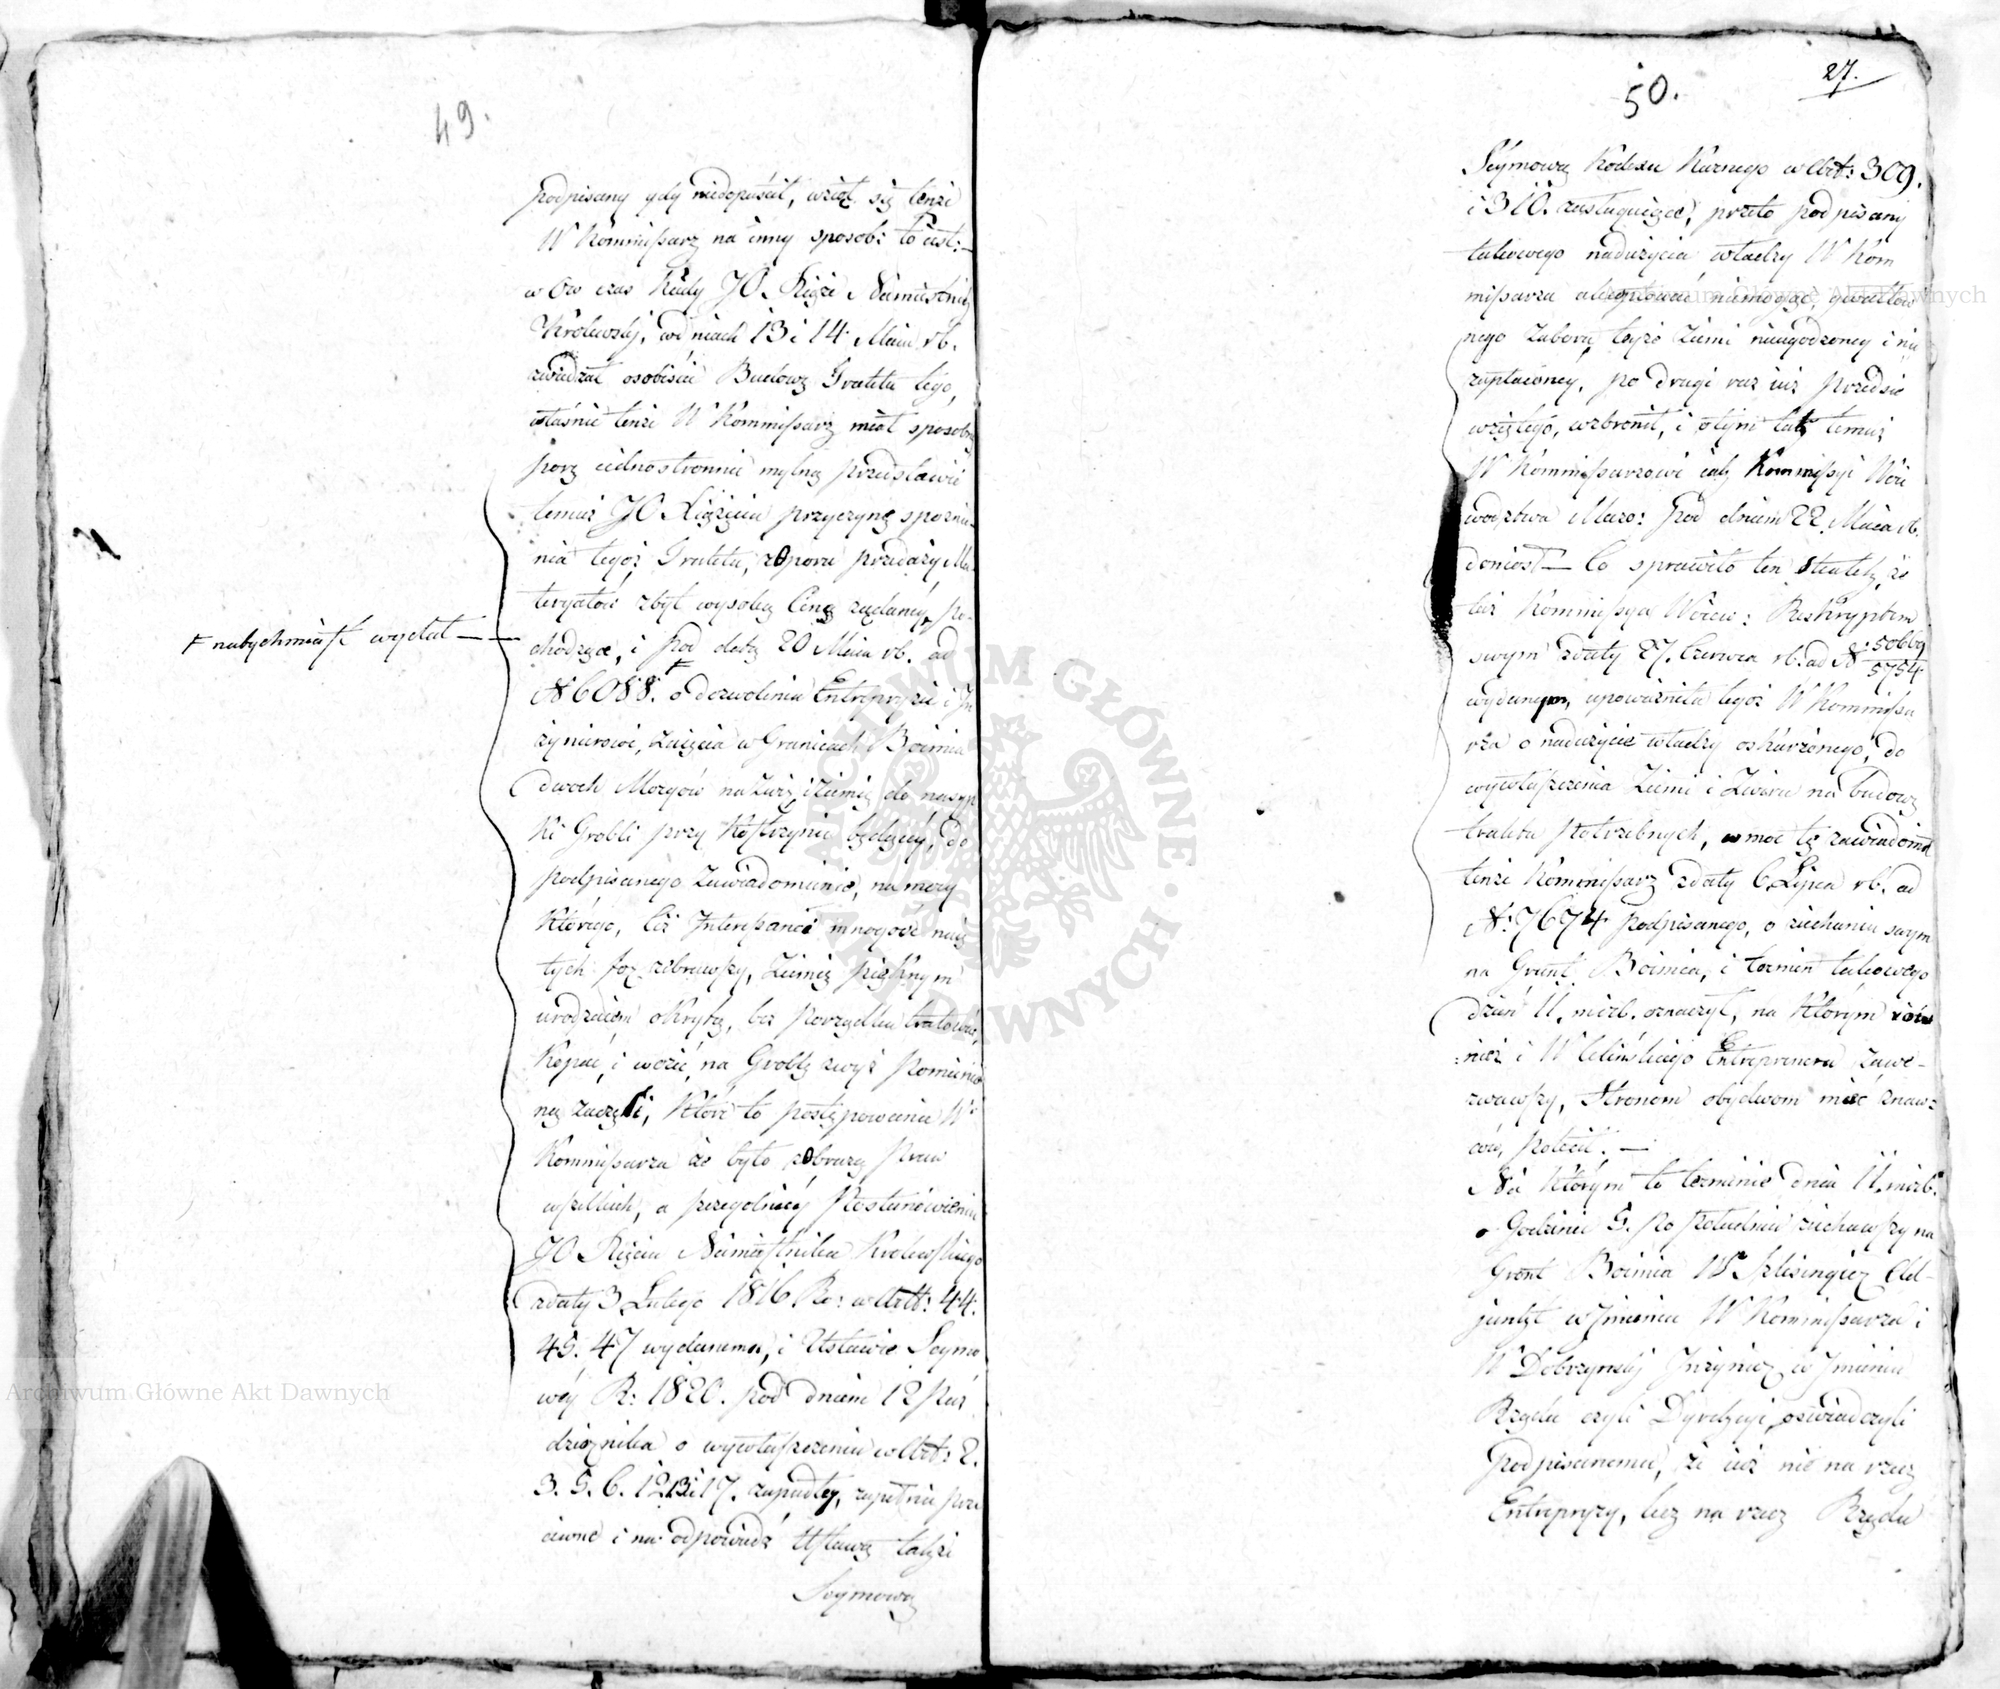 49.
podpisany gdy niedopuścił, wziął się tenże
W Kommissarz na inny sposób: to iest:—
w ów czas kiedy JO. Xiąże Namiestnik
Królewski, w dniach 13 i 14. Maia rb.
zwiedzał osobiście Budowę Traktu tego,
właśnie tenże W Kommissarz miał sposobną
porę iednostronnie mylną przedstawić
temuż JO Xięciu przyczynę spoznie-
nia tegoż Traktu, z oporu przedaży Ma-
teryałów zbyt wysoką Ceną żądaney, po-
chodzące, i pod datą 20 Maia rb. ad
N 6088. ⊦ o dozwoleniu Entrepryzie i In
żynierowi, zaięcia w Granicach Boimia
dwóch Morgów na Żwir i Ziemię do nasyp
ki Grobli przy Kostrzyniu będącéy, do
podpisanego Zawiadomienie, na mocy
którego, Ciż Interessanci mnogość naię
tych for zebrawszy, Ziemię pięknym
urodzaiem okrytą, bez porządku tratować,
kopać, i wozić na Groblę zwyż pomienio
ną zaczęli, które to postępowanie W
Kommissarza że było z obrazą Praw
wszelkich, a szczególniéy Postanowieniu
JO Xięcia Namiestnika Królewskiego
z daty 3 Lutego 1816 Ro: w Artt: 44.
45. 47 wydanemu, i Ustawie Seymo
wéy R: 1820. pod dniem 12 Paź
dziernika o wywłaszczeniu w Art: 2.
3. 5. 6. 12. 13 i 17. zapadłey, zupełnie prze
ciwne i na odpowiedź Ustawą także
Seymową
⊦ natychmiast wydał —
50.
27.
Seymową Kodexu Karnego w Art: 309.
i 310. zasługuiące, przeto podpisany
takowego nadużycia władzy W Kom
missarza akceptować niemogąc, gwałtow
nego zaboru teyże Ziemi nieugodzoney i nie
zapłaconey, po drugi raz iuż przedsię
wziętego, wzbronił, i o tym tak temuż
W Kommissarzowi iak Kommissyi Woie
wodztwa Mazo: pod dniem 22 Maia rb.
doniosł — Co sprawiło ten skutek, że
taż Kommissya Woiew: Reskryptem
swym z daty 27. Czerwca rb. ad N: 50669/5754
wydanym, upoważniła tegoż W Kommissa
rza o nadużycie władzy oskarżonego, do
wywłaszczenia Ziemi i Żwiru na budowę
traktu potrzebnych, w moc tę zawiadomił
tenże Kommissarz z daty 6 Lipca rb. ad
N: 7674 podpisanego, o ziechaniu swym
na Grunt Boimia, i termin takowego
dzień 11. m. i rb. oznaczył, na którym rów
nież i W Celińskiego Entreprenera zawe-
zwawszy, stronom obydwom mieć znaw=
ców, polecił. —
Na którym to terminie dnia 11. m. i rb.
o Godzinie 5. po południu ziechawszy na
Grunt Boimia W Szlesingier Ad-
junkt w Imieniu W Kommissarza i
W Dobrzynski Inżynier w Imieniu
Rządu czyli Dyrekcyi oświadczyli
Podpisanemu, że iuż nie na rzecz
Entrepryzy, lecz na rzecz Rządu
ARCHIWUM GŁÓWNE AKT DAWNYCH
Archiwum Główne Akt Dawnych
Archiwum Główne Akt Dawnych